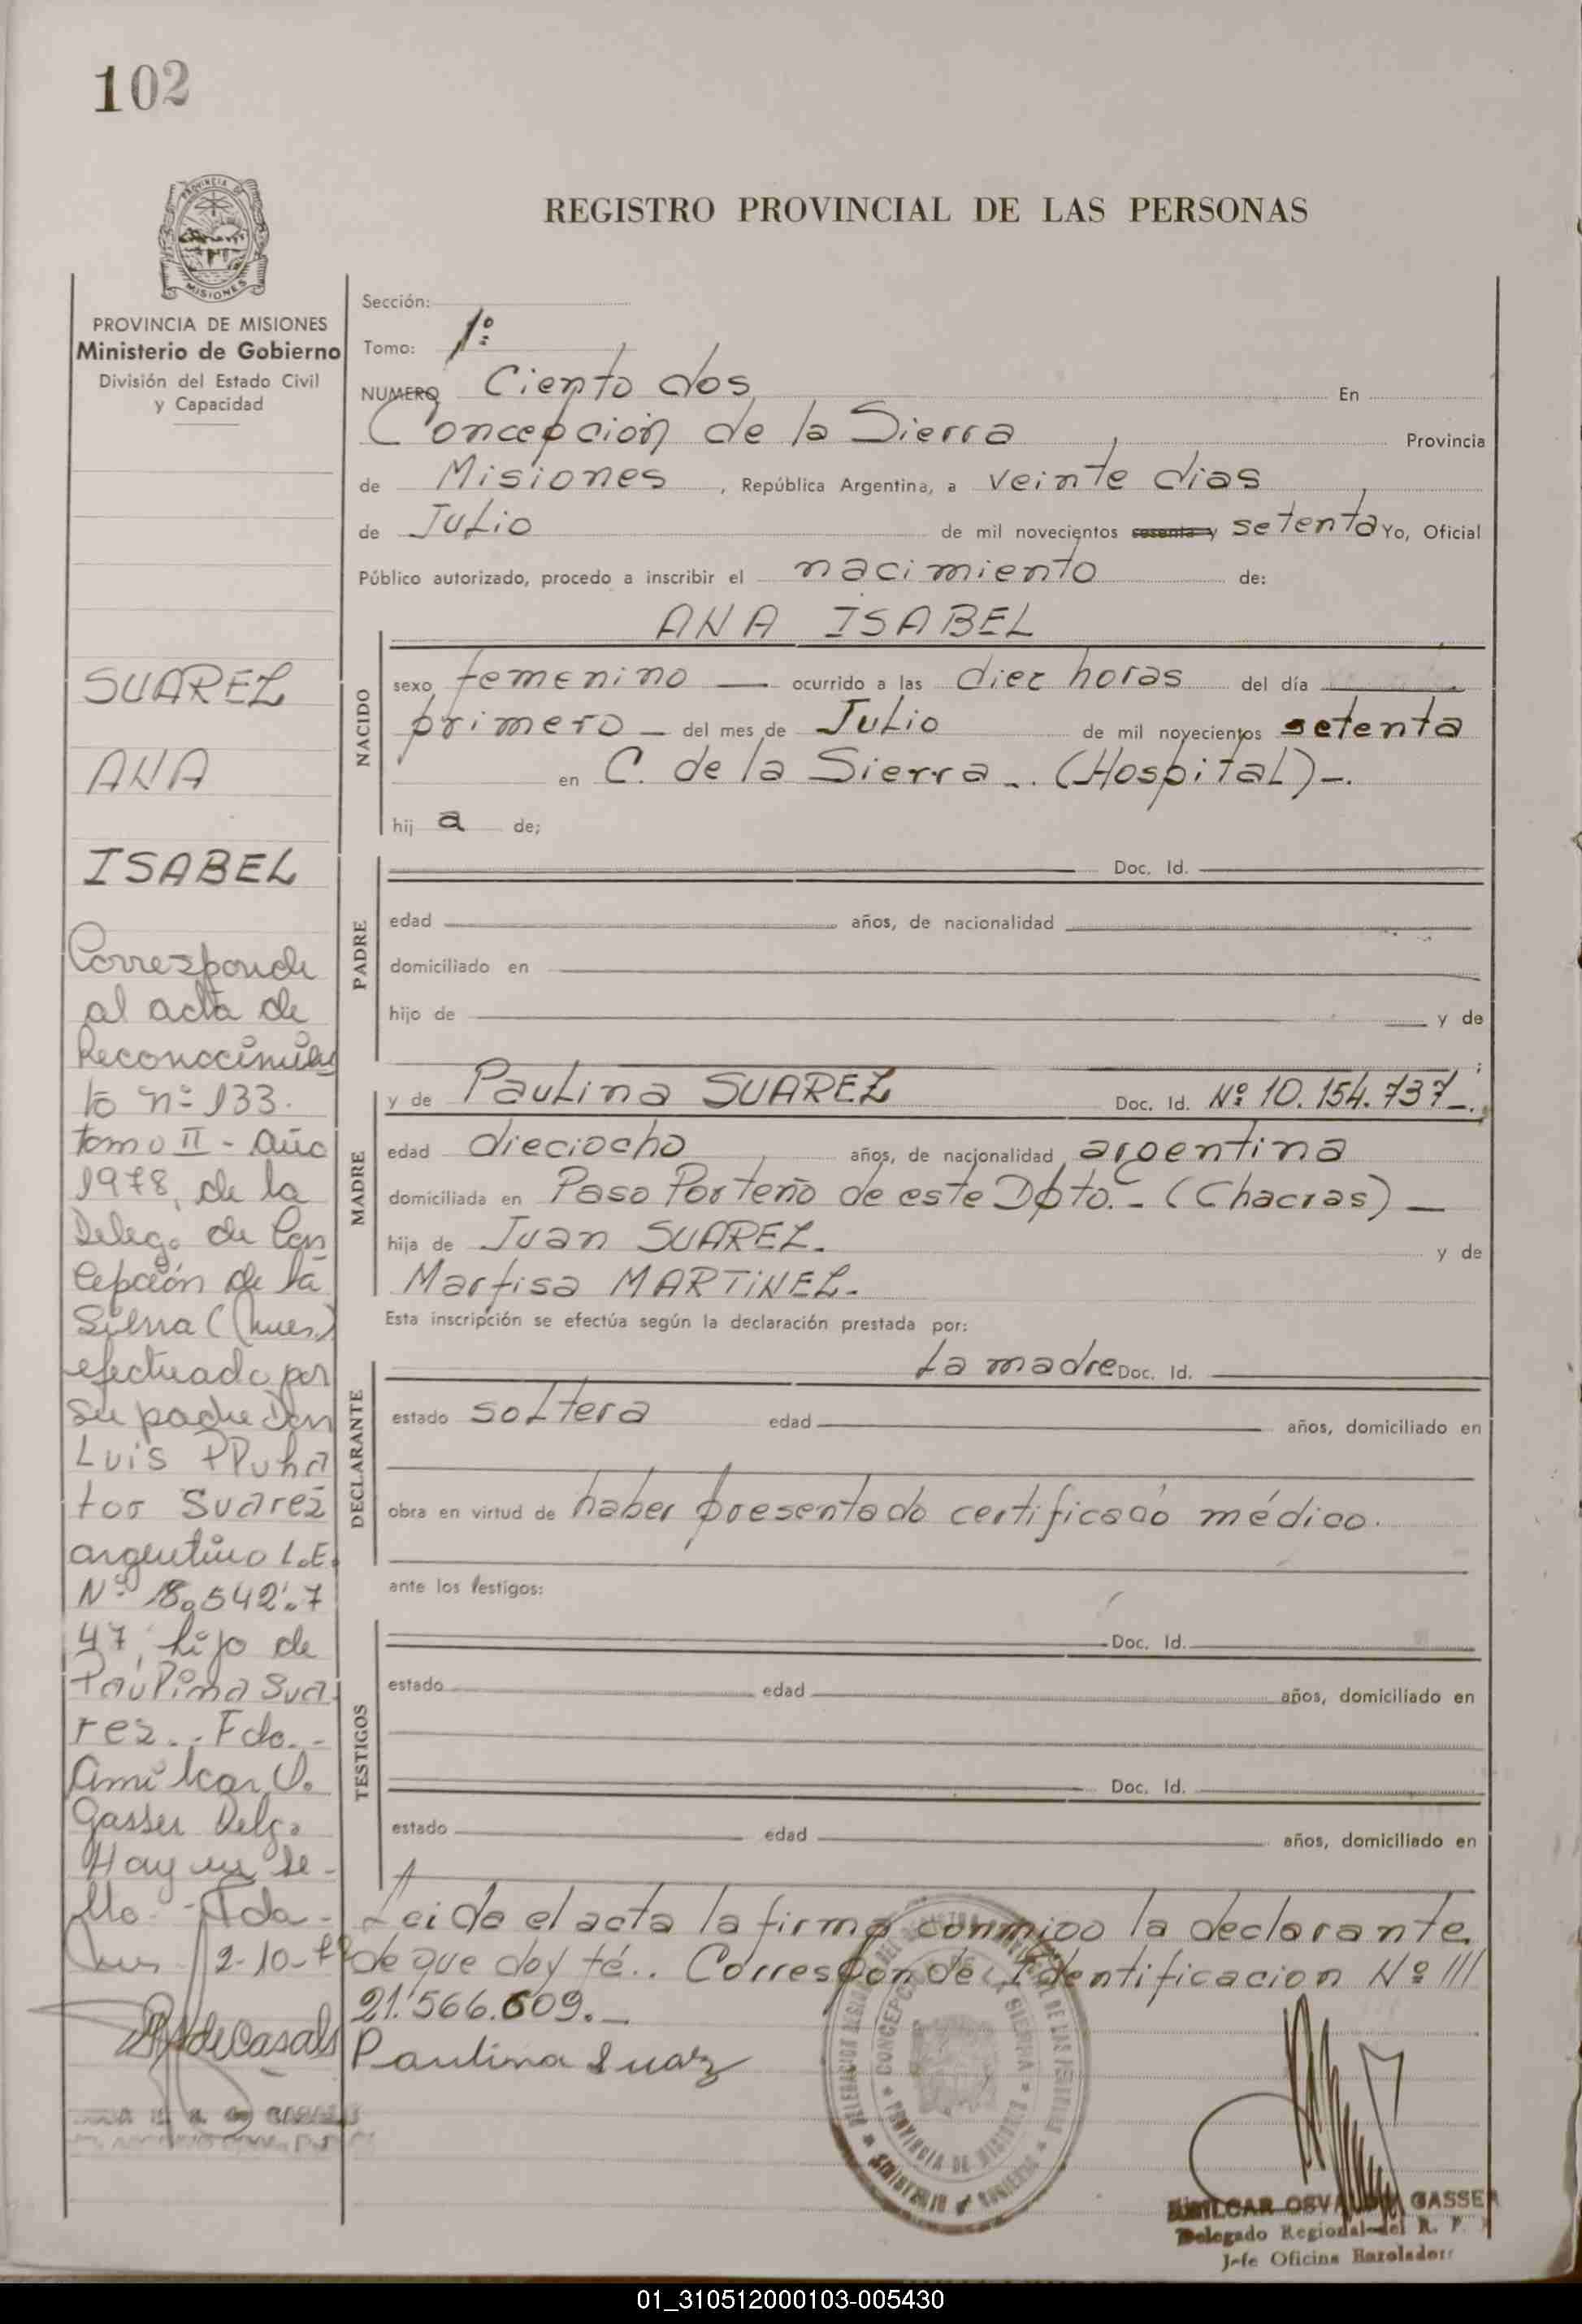 102
REGISTRO PROVINCIAL DE LAS PERSONAS
PROVINCIA DE
MISIONES
PROVINCIA DE MISIONES
Ministerio de Gobierno
División del Estado Civil
y Capacidad
SUAREZ
ANA
ISABEL
Corresponde
al acta de
Reconocimien
to nº 133.
tomo II - año
1978, de la
Deleg. de Con
cepción de la
Sierra (Mnes.)
efectuado por
su padre Don
Luis
Suarez
argentino L.E.
Nº 8.542.7
47, hijo de
Paulina Sua
rez.- Fdo.-
Amilcar O.
Gasser Delg.
Hay un se-
llo.-
2-10-
Sección:
Tomo: 1º
NUMERO Ciento dos En
Concepción de la Sierra, Provincia
de Misiones, República Argentina, a veinte dias
de Julio de mil novecientos sesenta y setenta Yo, Oficial
Público autorizado, procedo a inscribir el nacimiento de:
ANA ISABEL
NACIDO
sexo femenino — ocurrido a las diez horas del día
primero — del mes de Julio de mil novecientos setenta
en C. de la Sierra.. (Hospital)-.
hij a de;
PADRE
Doc. Id.
edad años, de nacionalidad
domiciliado en
hijo de y de
MADRE
y de Paulina SUAREZ Doc. Id. Nº 10.154.737-.
edad dieciocho años, de nacionalidad argentina
domiciliada en Paso Porteño de este Dpto.- (Chacras) —
hija de Juan SUAREZ. y de
Marfisa MARTINEZ.
Esta inscripción se efectúa según la declaración prestada por:
DECLARANTE
La madre Doc. Id.
estado soltera edad años, domiciliado en
obra en virtud de haber presentado certificado médico.
ante los testigos:
TESTIGOS
Doc. Id.
estado edad años, domiciliado en
Doc. Id.
estado edad años, domiciliado en
Leida el acta la firma conmigo la declarante.
de que doy fé.. Corresponde Identificacion Nº
21.566.609.-
Paulina Suarez
CONCEPCION DE LA SIERRA
PROVINCIA DE MISIONES
AMILCAR OSVALDO GASSER
Delegado Regional del R. P.
Jefe Oficina
01_310512000103-005430